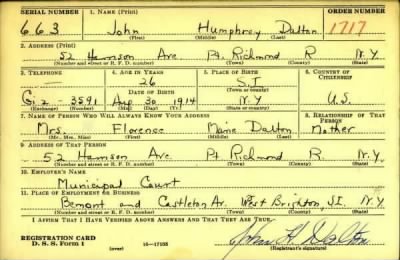 SERIAL NUMBER 1. NAME (Print) ORDER NUMBER
663 John Humphrey Dalton 1717
(First) (Middle) (Last)
2. ADDRESS (Print)
52 Harrison Ave. Pt. Richmond R N.Y
(Number and street or R. F. D. number) (Town) (County) (State)
3. TELEPHONE 4. AGE IN YEARS 5. PLACE OF BIRTH 6. COUNTRY OF CITIZENSHIP
— 26 S.I.
DATE OF BIRTH (Town or county)
Gi 2 - 3591 Aug 30 1914 N.Y U.S.
(Exchange) (Number) (Mo.) (Day) (Yr.) (State or country)
7. NAME OF PERSON WHO WILL ALWAYS KNOW YOUR ADDRESS 8. RELATIONSHIP OF THAT PERSON
Mrs. Florence Marie Dalton Mother
(Mr., Mrs., Miss) (First) (Middle) (Last)
9. ADDRESS OF THAT PERSON
52 Harrison Ave. Pt. Richmond R. N.Y.
(Number and street or R. F. D. number) (Town) (County) (State)
10. EMPLOYER'S NAME
Municipal Court
11. PLACE OF EMPLOYMENT OR BUSINESS
Bement and Castleton Av. West Brighton, S.I. N.Y
(Number and street or R. F. D. number) (Town) (County) (State)
I AFFIRM THAT I HAVE VERIFIED ABOVE ANSWERS AND THAT THEY ARE TRUE.
REGISTRATION CARD
D. S. S. Form 1 (over) 16—17105 John H. Dalton
(Registrant's signature)